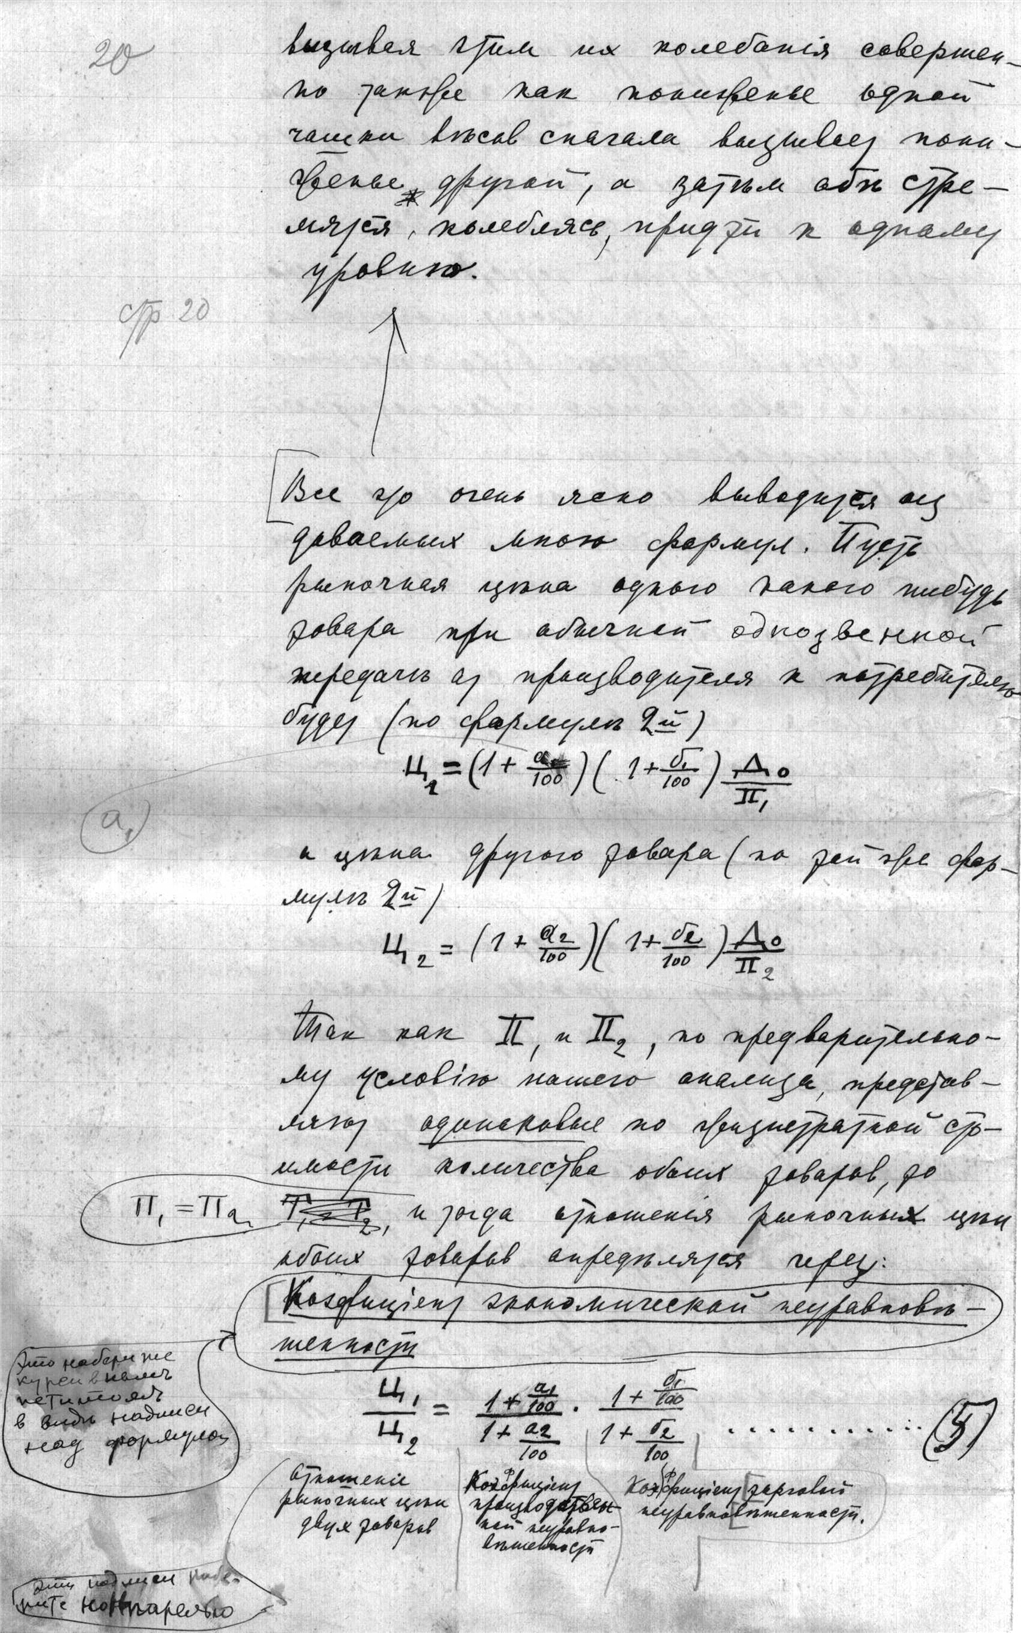 20
вызывая этим их колебанія совершен-
но также как пониженье одной
чашки вѣсов сначала вызывает пони-
женье другой, а затѣм обѣ стре-
мятся, колеблясь, придти к одному
уровню.
стр 20
Все это очень ясно выводится из
даваемых мною формул. Пусть
рыночная цѣна одного какого нибудь
товара при обычной однозвенной
передачѣ от производителя к потребителю
будет (по формулѣ 2й)
Ц₁ = (1 + а₁/100) (1 + б₁/100) До/П₁
а₁
а цѣна другого товара (по той же фор-
мулѣ 2й)
Ц₂ = (1 + а₂/100) (1 + б₂/100) До/П₂
Так как П₁ и П₂, по предварительно-
му условію нашего анализа, представ-
ляют одинаковые по стои-
мости количества обоих товаров, то
П₁ = П₂, и тогда отношенія рыночных цѣн
обоих товаров опредѣлятся через:
Коэфиціент экономической неуравновѣ-
шенности
Это наберите
курсивным
петитом
в видѣ надписи
над формулой
Ц₁/Ц₂ = (1 + а₁/100)/(1 + а₂/100) · (1 + б₁/100)/(1 + б₂/100) .............. (5)
отношеніе
рыночных цѣн
двух товаров
Коэфиціент
производствен
ной неуравно-
вѣшенности
Коэфиціент торговой
неуравновѣшенности.
Эти надписи набе-
рите нонпарелью